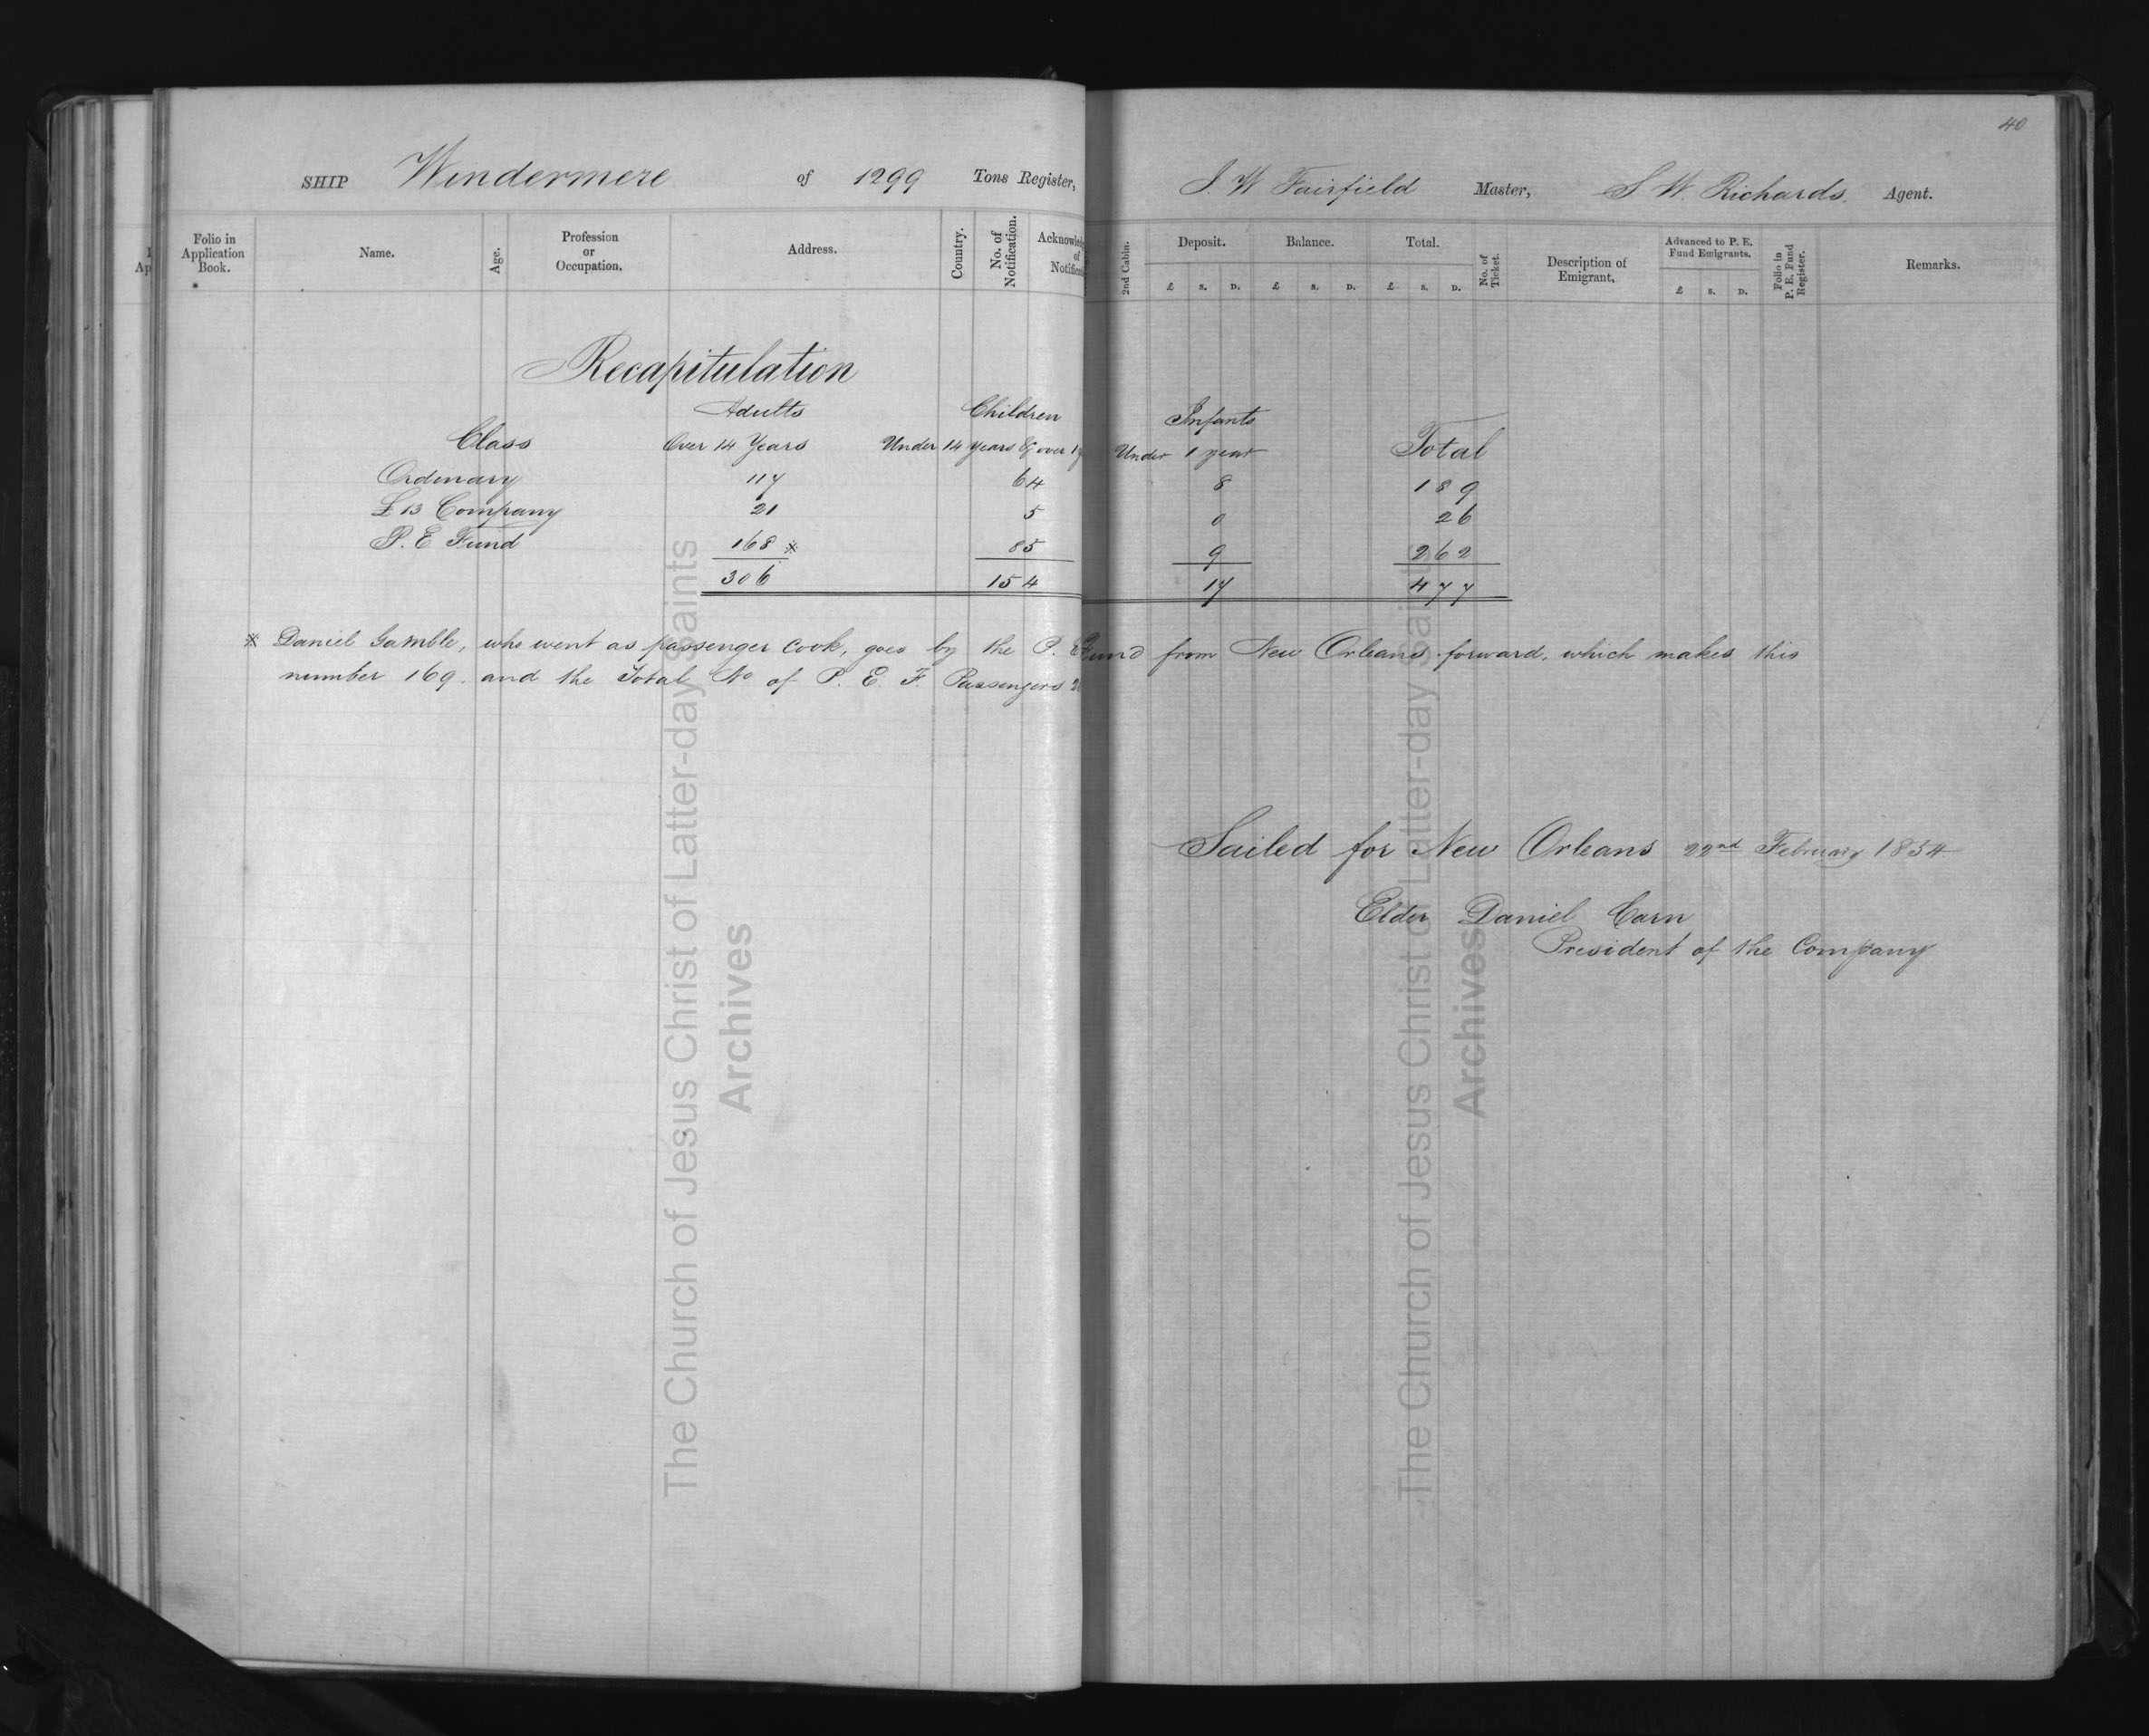 40
SHIP Windermere of 1299 Tons Register, J. W Fairfield Master, S W. Richards. Agent.
Folio in Application Book.
Name.
Age.
Profession or Occupation.
Address.
Country.
No. of Notification.
of
2nd Cabin.
Deposit.
£ S. D.
Balance.
£ S. D.
Total.
£ S. D.
No. of Ticket.
Description of Emigrant.
Advanced to P. E. Fund Emigrants.
£ S. D.
Folio in P. E. Fund Register.
Remarks.
Recapitulation
Adults Children Infants
Class Over 14 Years Under 14 years & over 1 Under 1 year Total
Ordinary 117 64 8 189
£13 Company 21 5 0 26
P. E Fund 168 * 85 9 262
306 154 17 477
* Daniel Gamble, who went as passenger cook, goes by the P. E Fund from New Orleans forward, which makes this
number 169. and the Total No of P. E. F. Passengers
Sailed for New Orleans 22nd February 1854
Elder Daniel Carn
President of the Company
The Church of Jesus Christ of Latter-day Saints
Archives
The Church of Jesus Christ of Latter-day Saints
Archives